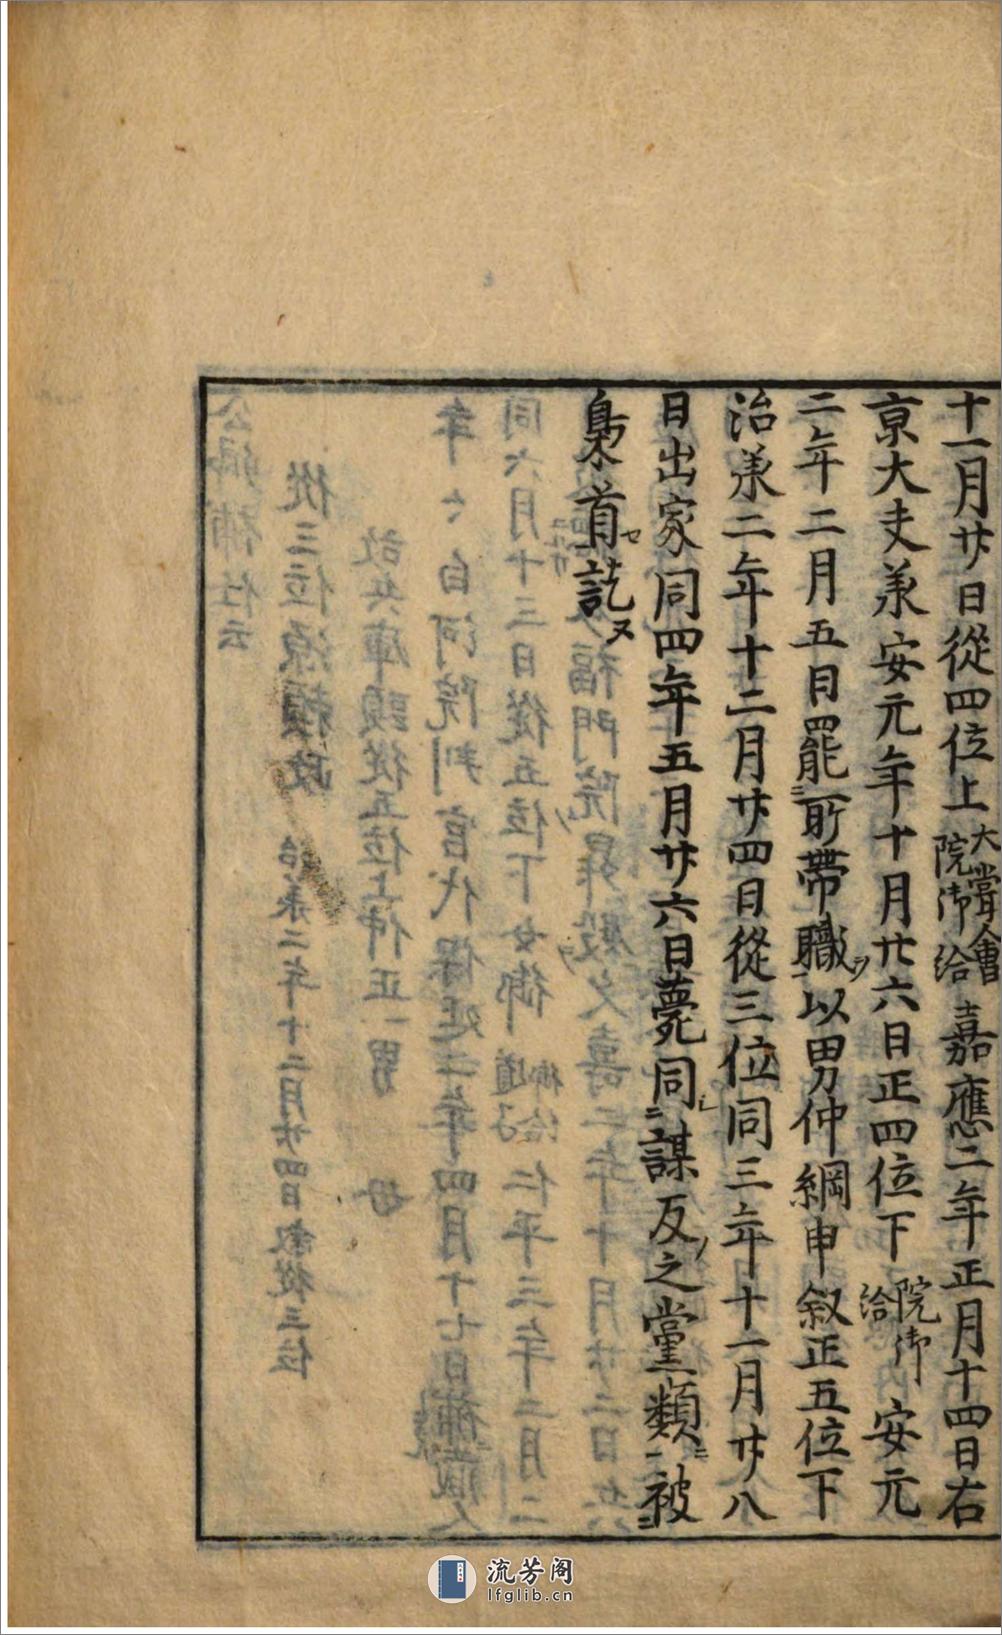 十一月廿日從四位上大嘗會院御給嘉應二年正月十四日右
京大夫羕安元年十月廿六日正四位下院御給安元
二年二月五日罷二所帶職一ヲ以男仲綱申叙正五位下
治羕二年十二月廿四日從三位同三年十一月廿八
日出家同四年五月廿六日薨同二シ謀反ノ之黨類一ニ被二
梟首セ訖ヌ
流芳阁
lfglib.cn